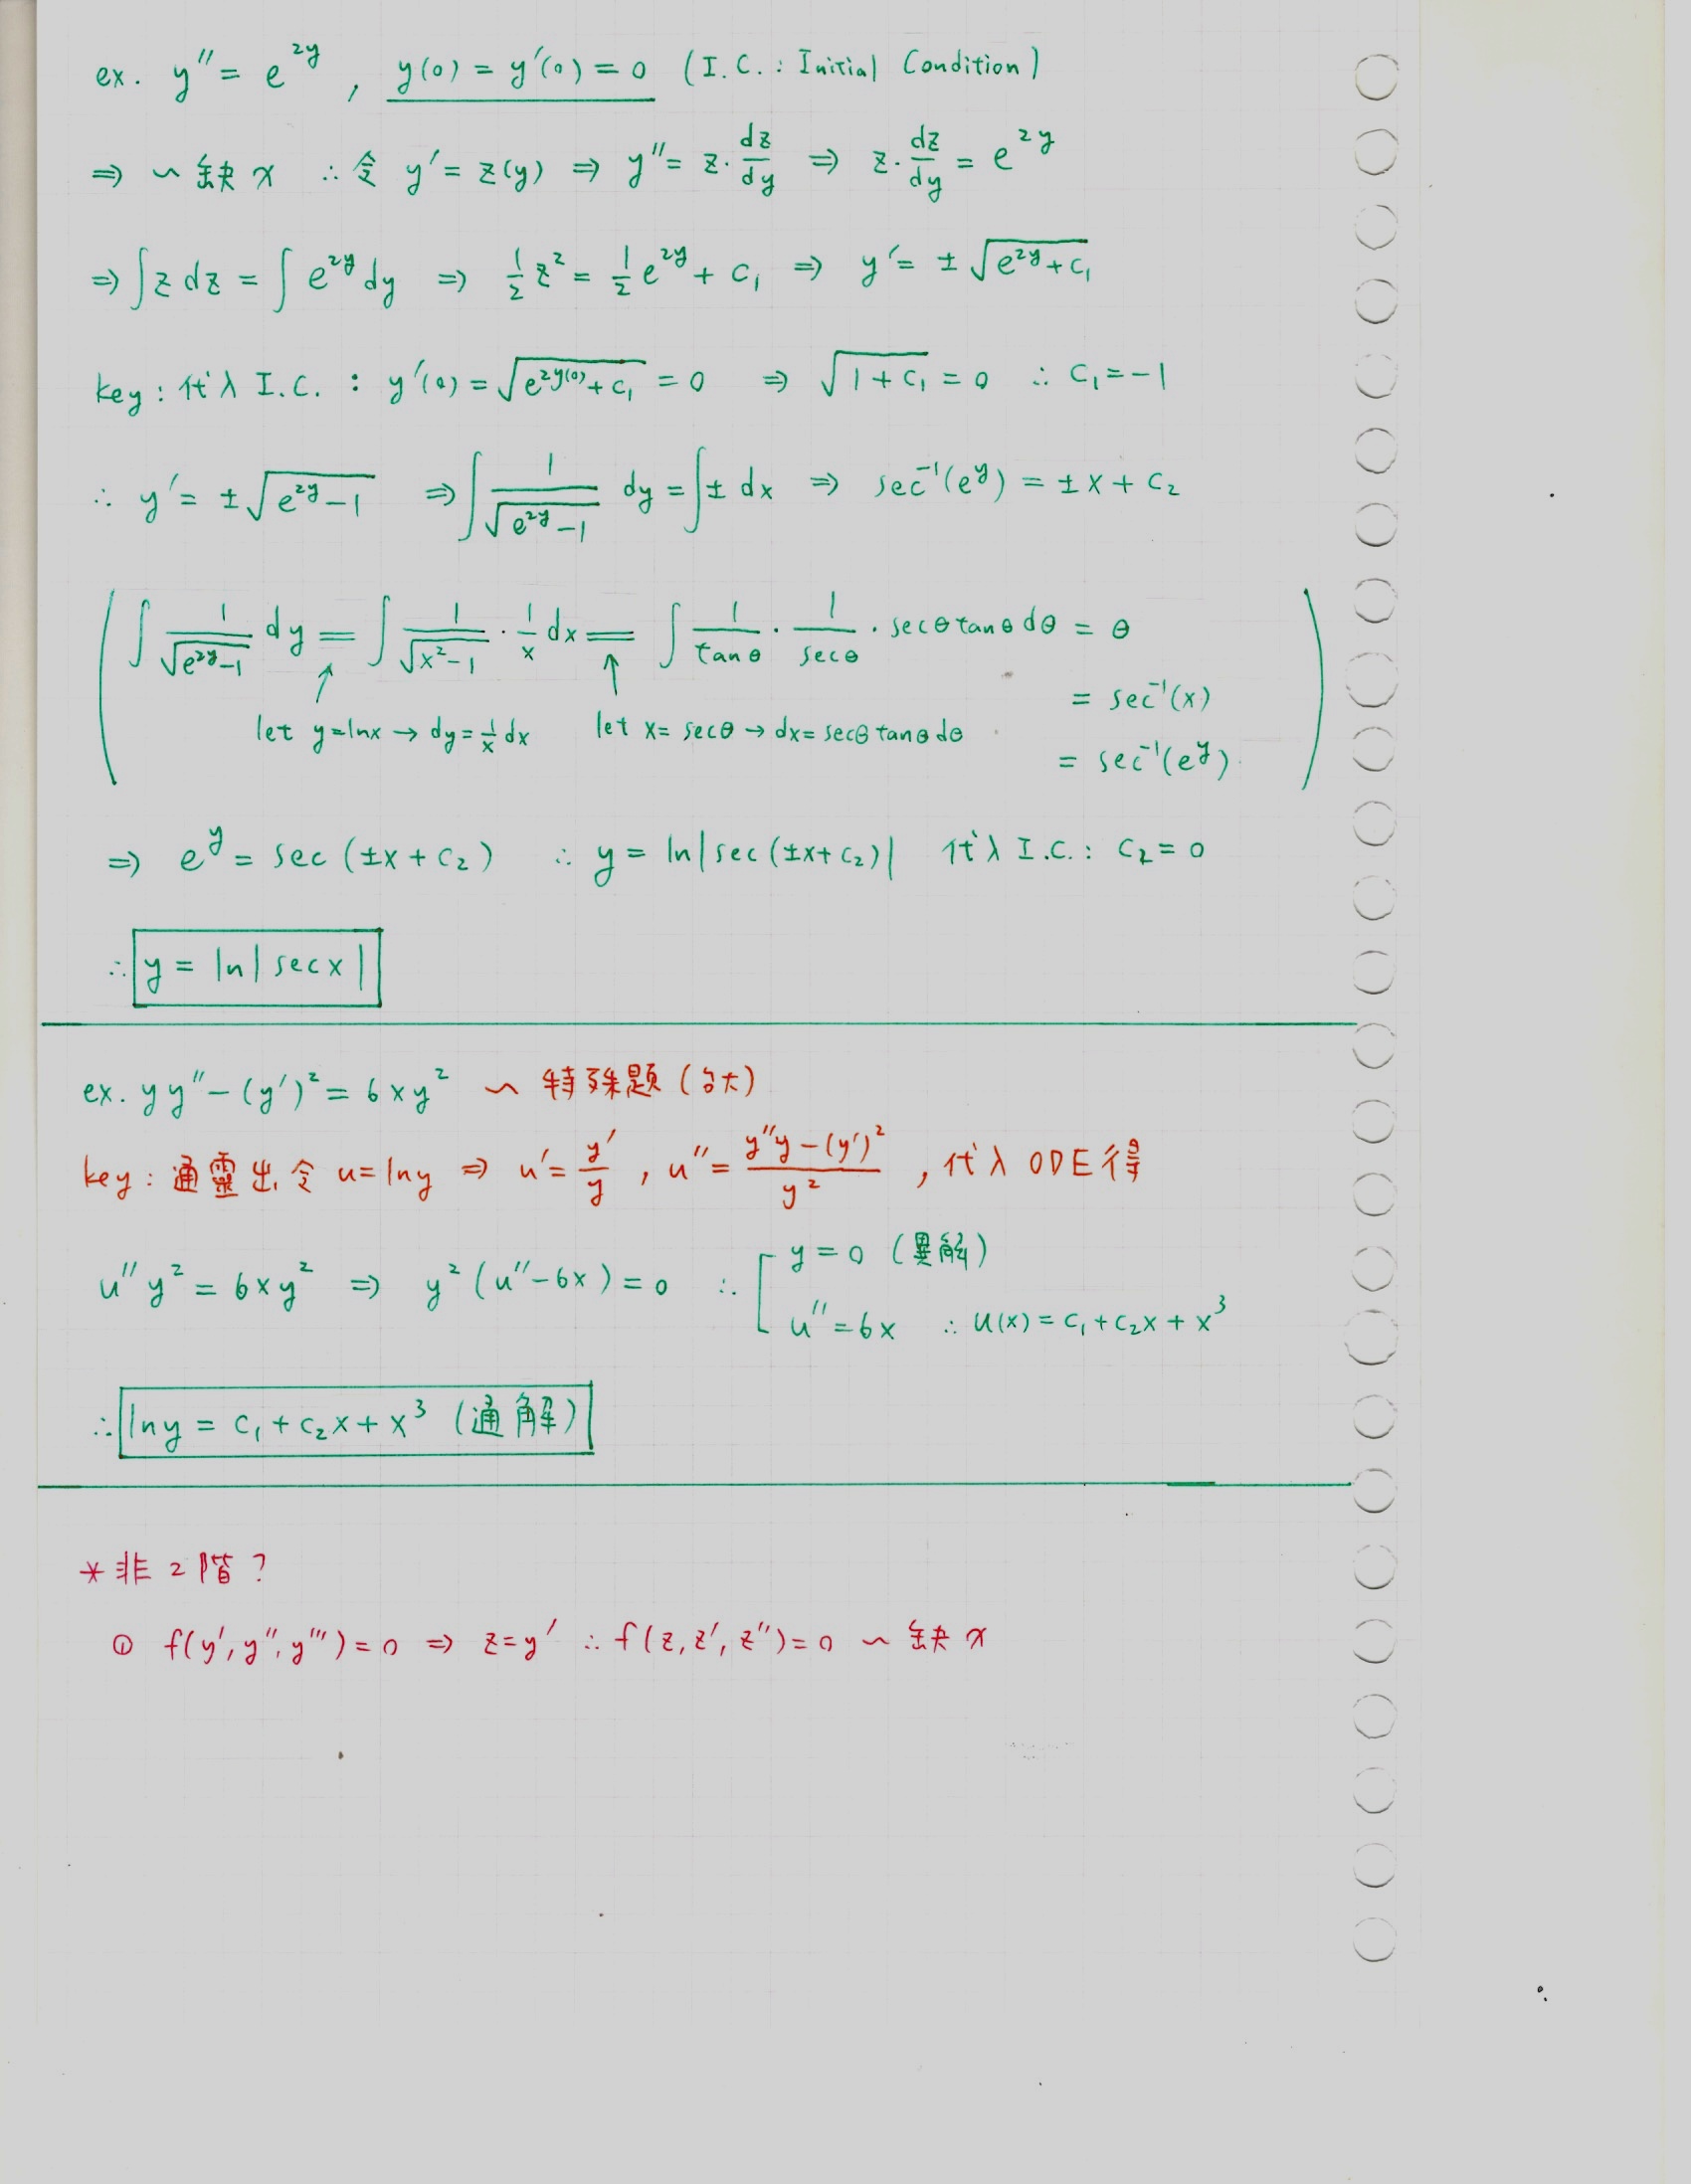 ex. y'' = e^{2y} , y(0) = y'(0) = 0 (I.C. : Initial Condition)
⇒ ~ 缺 x ∴ 令 y' = z(y) ⇒ y'' = z · dz/dy ⇒ z · dz/dy = e^{2y}
⇒ ∫ z dz = ∫ e^{2y} dy ⇒ 1/2 z² = 1/2 e^{2y} + c₁ ⇒ y' = ± √(e^{2y} + c₁)
key : 代入 I.C. : y'(0) = √(e^{2y(0)} + c₁) = 0 ⇒ √(1 + c₁) = 0 ∴ c₁ = -1
∴ y' = ± √(e^{2y} - 1) ⇒ ∫ 1/√(e^{2y} - 1) dy = ∫ ± dx ⇒ sec⁻¹(e^y) = ± x + c₂
∫ 1/√(e^{2y} - 1) dy = ∫ 1/√(x² - 1) · 1/x dx = ∫ 1/tanθ · 1/secθ · secθ tanθ dθ = θ
= sec⁻¹(x)
let y = ln x → dy = 1/x dx let x = secθ → dx = secθ tanθ dθ
= sec⁻¹(e^y)
⇒ e^y = sec (±x + c₂) ∴ y = ln|sec (±x + c₂)| 代入 I.C. : c₂ = 0
∴ y = ln| sec x |
ex. y y'' - (y')² = 6xy² ~ 特殊題 (台大)
key : 通靈出令 u = ln y ⇒ u' = y'/y , u'' = (y''y - (y')²)/y² , 代入 ODE 得
u'' y² = 6xy² ⇒ y² (u'' - 6x) = 0 ∴ y = 0 (異解)
u'' = 6x ∴ u(x) = c₁ + c₂x + x³
∴ ln y = c₁ + c₂x + x³ (通解)
* 非 2 階 ?
① f(y', y'', y''') = 0 ⇒ z = y' ∴ f(z, z', z'') = 0 ~ 缺 x